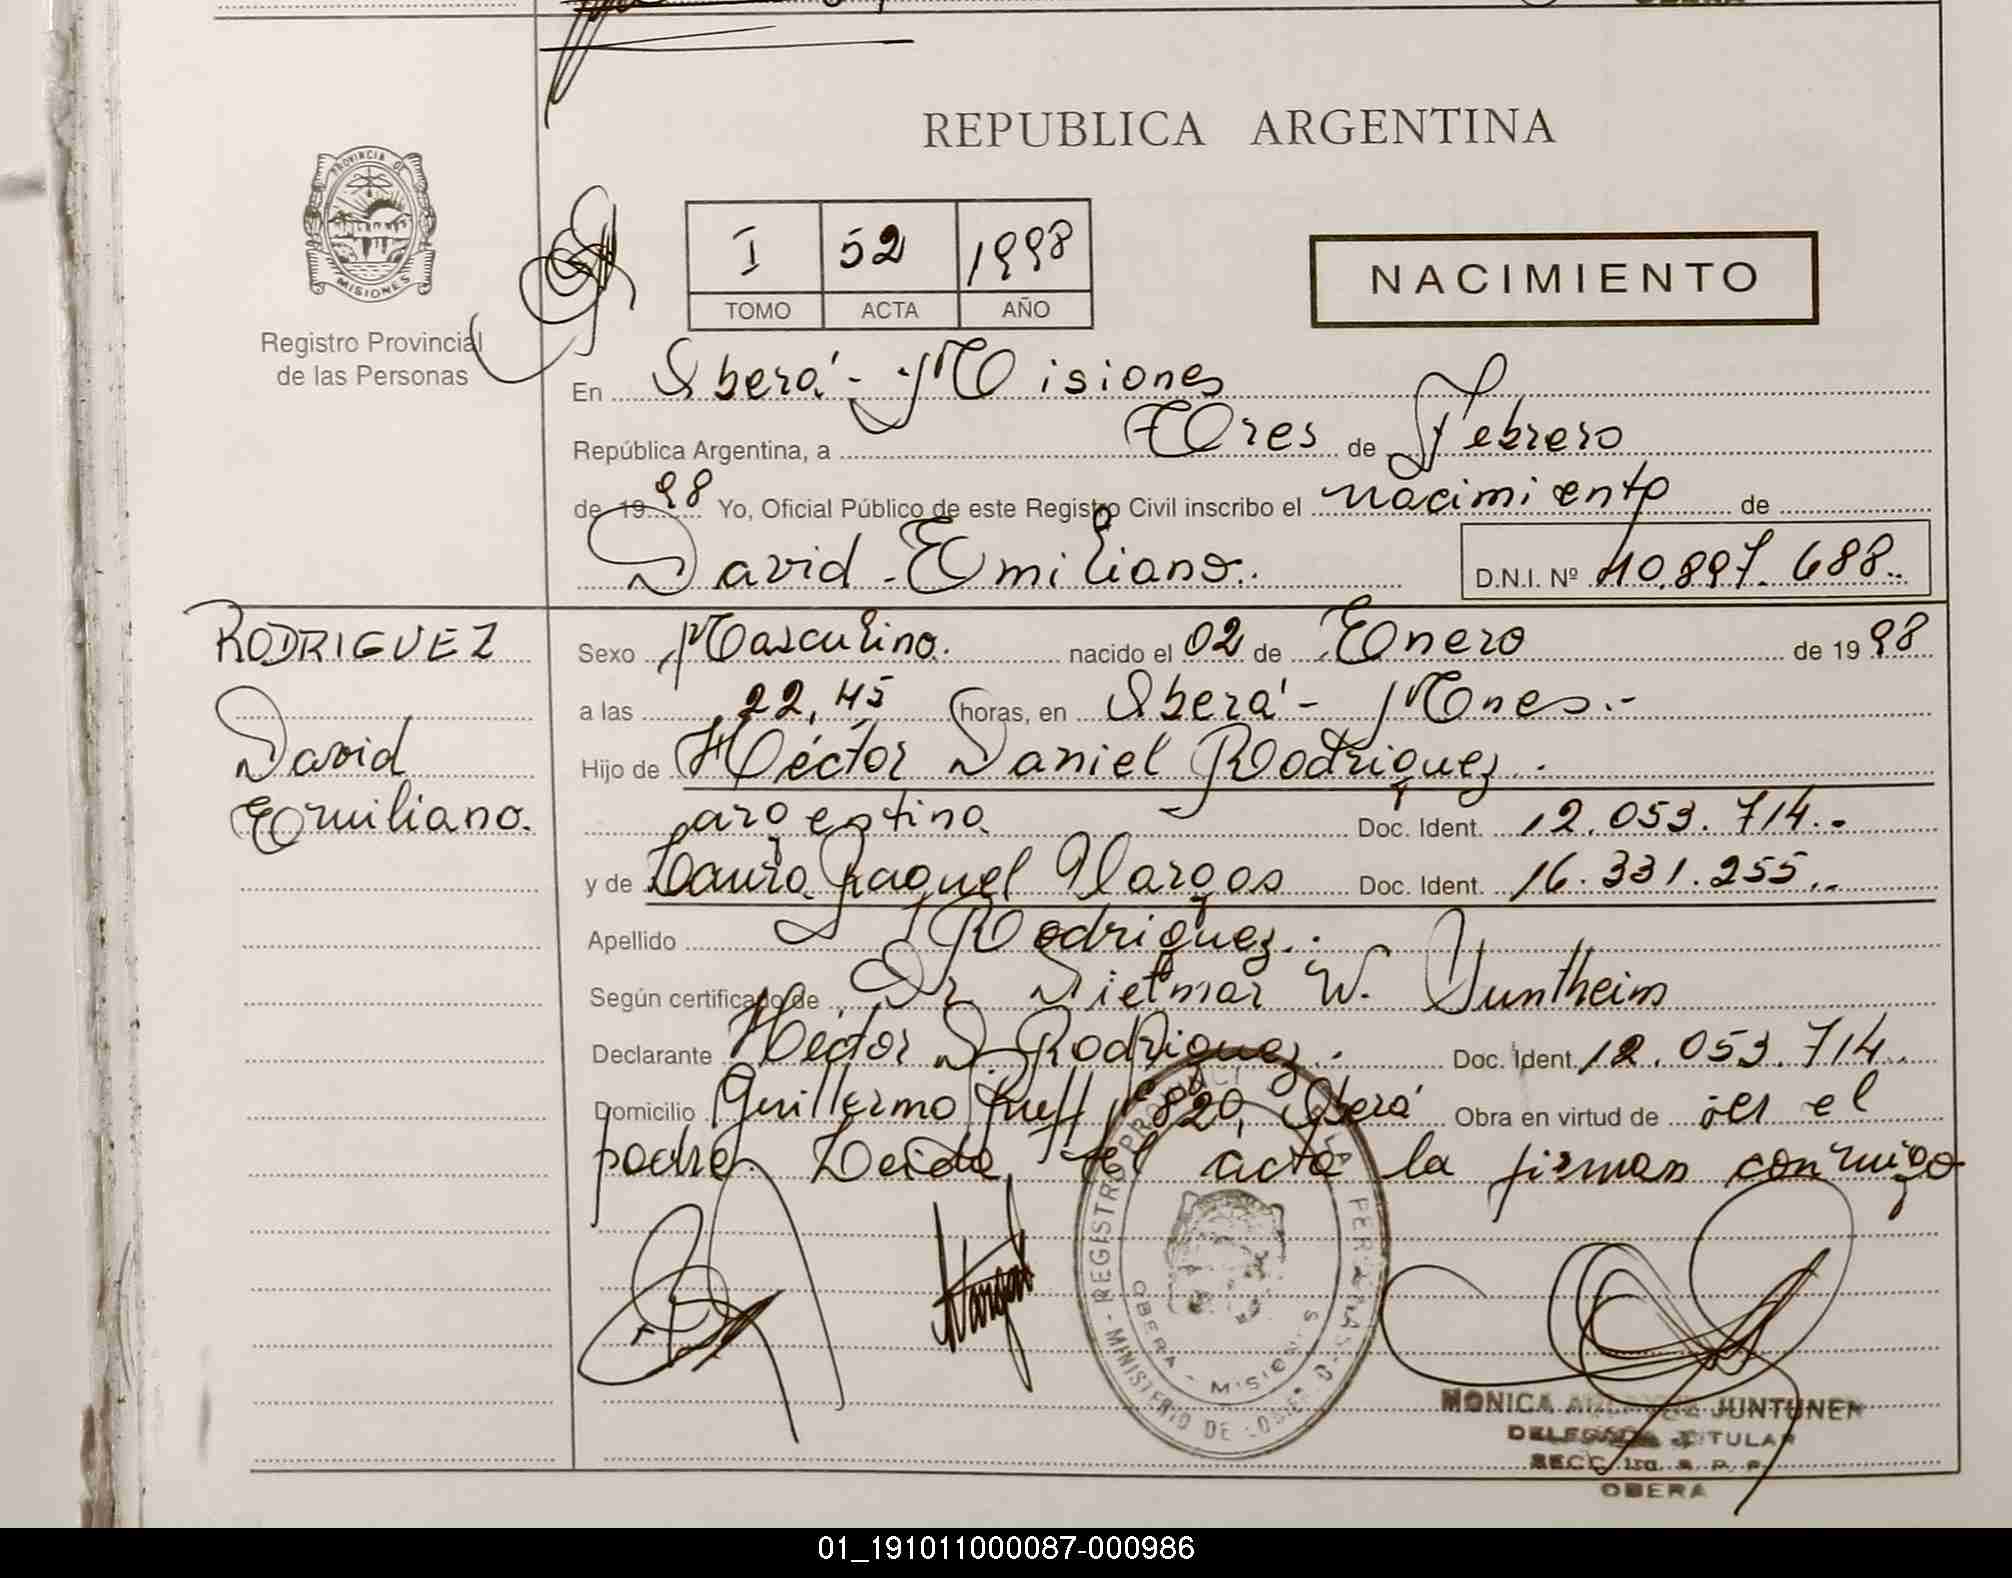 REPUBLICA ARGENTINA
PROVINCIA DE
MISIONES
Registro Provincial
de las Personas
I 52 1998
TOMO ACTA AÑO
NACIMIENTO
En Oberá - Misiones
República Argentina, a Tres de Febrero
de 1998 Yo, Oficial Público de este Registro Civil inscribo el nacimiento de
David Emiliano. D.N.I. Nº 40.897.688..
RODRIGUEZ
David
Emiliano.
Sexo Masculino. nacido el 02 de Enero de 1998
a las 22,45 horas, en Oberá - Mnes.-
Hijo de Héctor Daniel Rodriguez.
argentino Doc. Ident. 12.053.714..
y de Laura Raquel Vargas Doc. Ident. 16.331.255..
Apellido Rodriguez..
Según certificado de Dr Dietmar W. Juntheim
Declarante Héctor D. Rodriguez. Doc. Ident. 12.053.714..
Domicilio Guillermo 820, Oberá Obra en virtud de ser el
padre. Leida el acta la firman conmigo
REGISTRO PERSONAS
MINISTERIO DE
OBERA - MISIONES
MONICA JUNTUNEN
DELEGADA TITULAR
SECC. 1ra. R. P. P.
OBERA
01_191011000087-000986